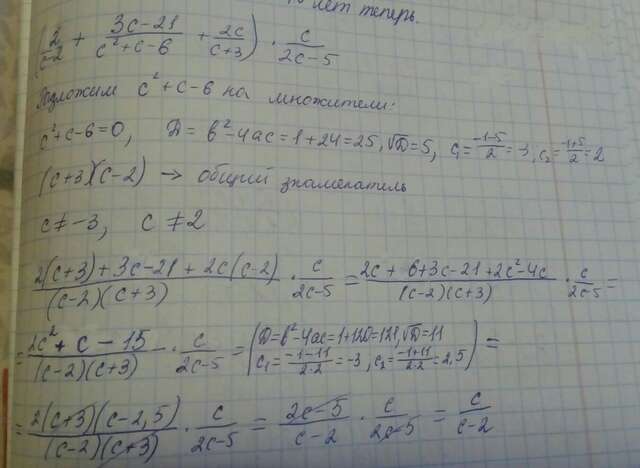 лет теперь.
(2/(c-2) + (3c-21)/(c²+c-6) + 2c/(c+3)) · c/(2c-5)
Разложим c²+c-6 на множители:
c²+c-6=0, D=b²-4ac=1+24=25, √D=5, c₁=(-1-5)/2=-3, c₂=(-1+5)/2=2
(c+3)(c-2) → общий знаменатель
c≠-3, c≠2
(2(c+3)+3c-21+2c(c-2))/((c-2)(c+3)) · c/(2c-5) = (2c+6+3c-21+2c²-4c)/((c-2)(c+3)) · c/(2c-5) =
= (2c²+c-15)/((c-2)(c+3)) · c/(2c-5) = (D=b²-4ac=1+120=121, √D=11 c₁=(-1-11)/(2·2)=-3, c₂=(-1+11)/(2·2)=2,5) =
= (2(c+3)(c-2,5))/((c-2)(c+3)) · c/(2c-5) = (2c-5)/(c-2) · c/(2c-5) = c/(c-2)